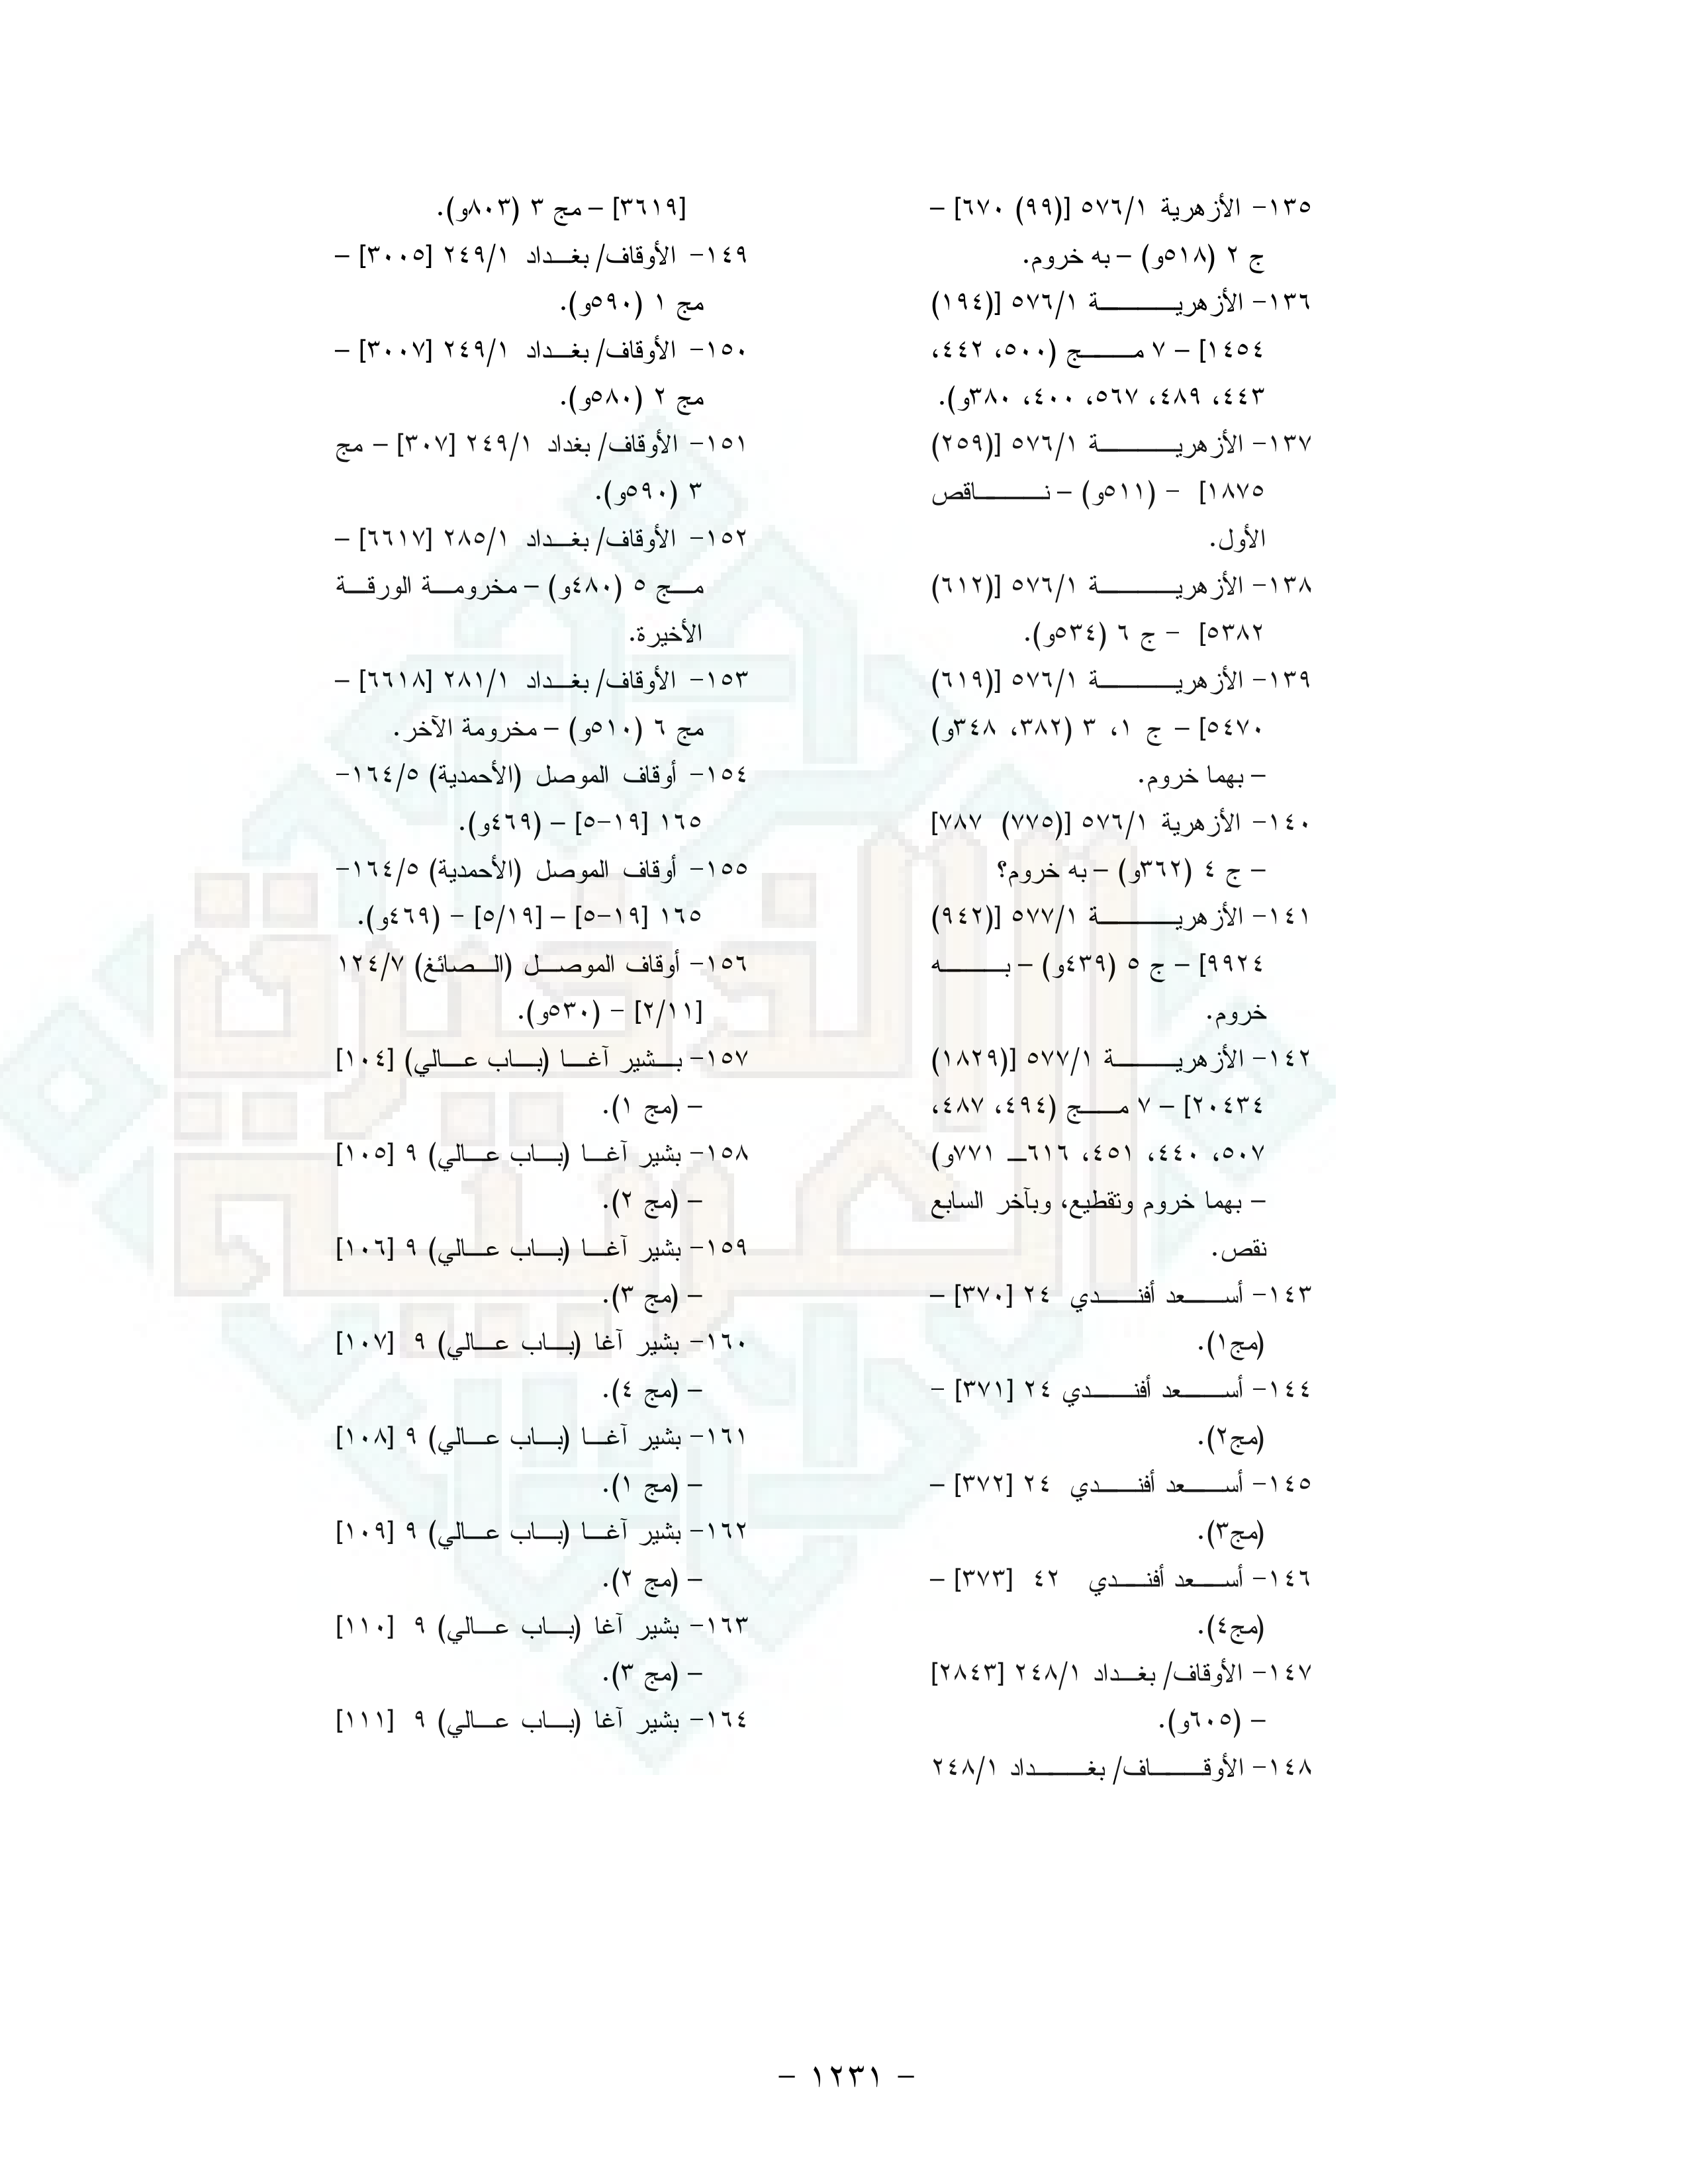 ١٣٥- الأزهرية ٥٧٦/١ [(٩٩) ٦٧٠] –
ج ٢ (٥١٨و) – به خروم.
١٣٦- الأزهريـــــــة ٥٧٦/١ [(١٩٤)
١٤٥٤] – ٧ مـــــج (٥٠٠، ٤٤٢،
٤٤٣، ٤٨٩، ٥٦٧، ٤٠٠، ٣٨٠و).
١٣٧- الأزهريـــــــة ٥٧٦/١ [(٢٥٩)
١٨٧٥] - (٥١١و) – نـــــــاقص
الأول.
١٣٨- الأزهريـــــــة ٥٧٦/١ [(٦١٢)
٥٣٨٢] - ج ٦ (٥٣٤و).
١٣٩- الأزهريـــــــة ٥٧٦/١ [(٦١٩)
٥٤٧٠] – ج ١، ٣ (٣٨٢، ٣٤٨و)
– بهما خروم.
١٤٠- الأزهرية ٥٧٦/١ [(٧٧٥) ٧٨٧]
– ج ٤ (٣٦٢و) – به خروم؟
١٤١- الأزهريـــــــة ٥٧٧/١ [(٩٤٢)
٩٩٢٤] – ج ٥ (٤٣٩و) – بـــــــه
خروم.
١٤٢- الأزهريـــــــة ٥٧٧/١ [(١٨٢٩)
٢٠٤٣٤] – ٧ مـــــج (٤٩٤، ٤٨٧،
٥٠٧، ٤٤٠، ٤٥١، ٦١٦ــ ٧٧١و)
– بهما خروم وتقطيع، وبآخر السابع
نقص.
١٤٣- أســـــعد أفنـــــدي ٢٤ [٣٧٠] –
(مج١).
١٤٤- أســـــعد أفنـــــدي ٢٤ [٣٧١] -
(مج٢).
١٤٥- أســـــعد أفنـــــدي ٢٤ [٣٧٢] –
(مج٣).
١٤٦- أســـــعد أفنـــــدي ٤٢ [٣٧٣] –
(مج٤).
١٤٧- الأوقاف/ بغـــداد ٢٤٨/١ [٢٨٤٣]
– (٦٠٥و).
١٤٨- الأوقـــــــاف/ بغـــــــداد ٢٤٨/١
[٣٦١٩] – مج ٣ (٨٠٣و).
١٤٩- الأوقاف/ بغـــداد ٢٤٩/١ [٣٠٠٥] –
مج ١ (٥٩٠و).
١٥٠- الأوقاف/ بغـــداد ٢٤٩/١ [٣٠٠٧] –
مج ٢ (٥٨٠و).
١٥١- الأوقاف/ بغداد ٢٤٩/١ [٣٠٧] – مج
٣ (٥٩٠و).
١٥٢- الأوقاف/ بغـــداد ٢٨٥/١ [٦٦١٧] –
مـــج ٥ (٤٨٠و) – مخرومـــة الورقـــة
الأخيرة.
١٥٣- الأوقاف/ بغـــداد ٢٨١/١ [٦٦١٨] –
مج ٦ (٥١٠و) – مخرومة الآخر.
١٥٤- أوقاف الموصل (الأحمدية) ١٦٤/٥-
١٦٥ [١٩-٥] – (٤٦٩و).
١٥٥- أوقاف الموصل (الأحمدية) ١٦٤/٥-
١٦٥ [١٩-٥] – [٥/١٩] - (٤٦٩و).
١٥٦- أوقاف الموصـــل (الـــصائغ) ١٢٤/٧
[٢/١١] - (٥٣٠و).
١٥٧- بـــشير آغـــا (بـــاب عـــالي) [١٠٤]
– (مج ١).
١٥٨- بشير آغـــا (بـــاب عـــالي) ٩ [١٠٥]
– (مج ٢).
١٥٩- بشير آغـــا (بـــاب عـــالي) ٩ [١٠٦]
– (مج ٣).
١٦٠- بشير آغا (بـــاب عـــالي) ٩ [١٠٧]
– (مج ٤).
١٦١- بشير آغـــا (بـــاب عـــالي) ٩ [١٠٨]
– (مج ١).
١٦٢- بشير آغـــا (بـــاب عـــالي) ٩ [١٠٩]
– (مج ٢).
١٦٣- بشير آغا (بـــاب عـــالي) ٩ [١١٠]
– (مج ٣).
١٦٤- بشير آغا (بـــاب عـــالي) ٩ [١١١]
- ١٢٣١ -